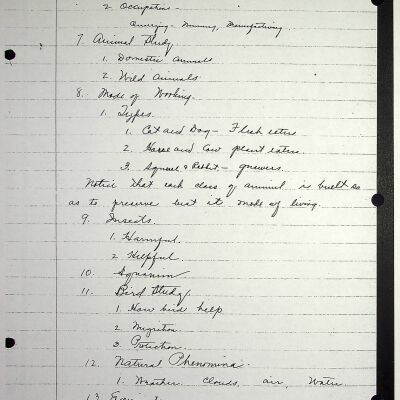 2. Occupations -
Quarrying - Mining, Manufacturing
7. Animal Study
1. Domestic animals
2. Wild Animals
8. Mode of Working
1. Types.
1. Cat and Dog - Flesh eaters
2. Horse and Cow plant eaters
3. Squirrel & Rabbit - gnawers.
Notice that each class of animal is built so
as to preserve best its mode of living.
9. Insects.
1. Harmful.
2. Helpful.
10. Aquarium
11. Bird Study.
1. How bird help
2. Migration
3. Protection.
12. Natural Phenomina.
1. Weather, clouds, air, Water
13.